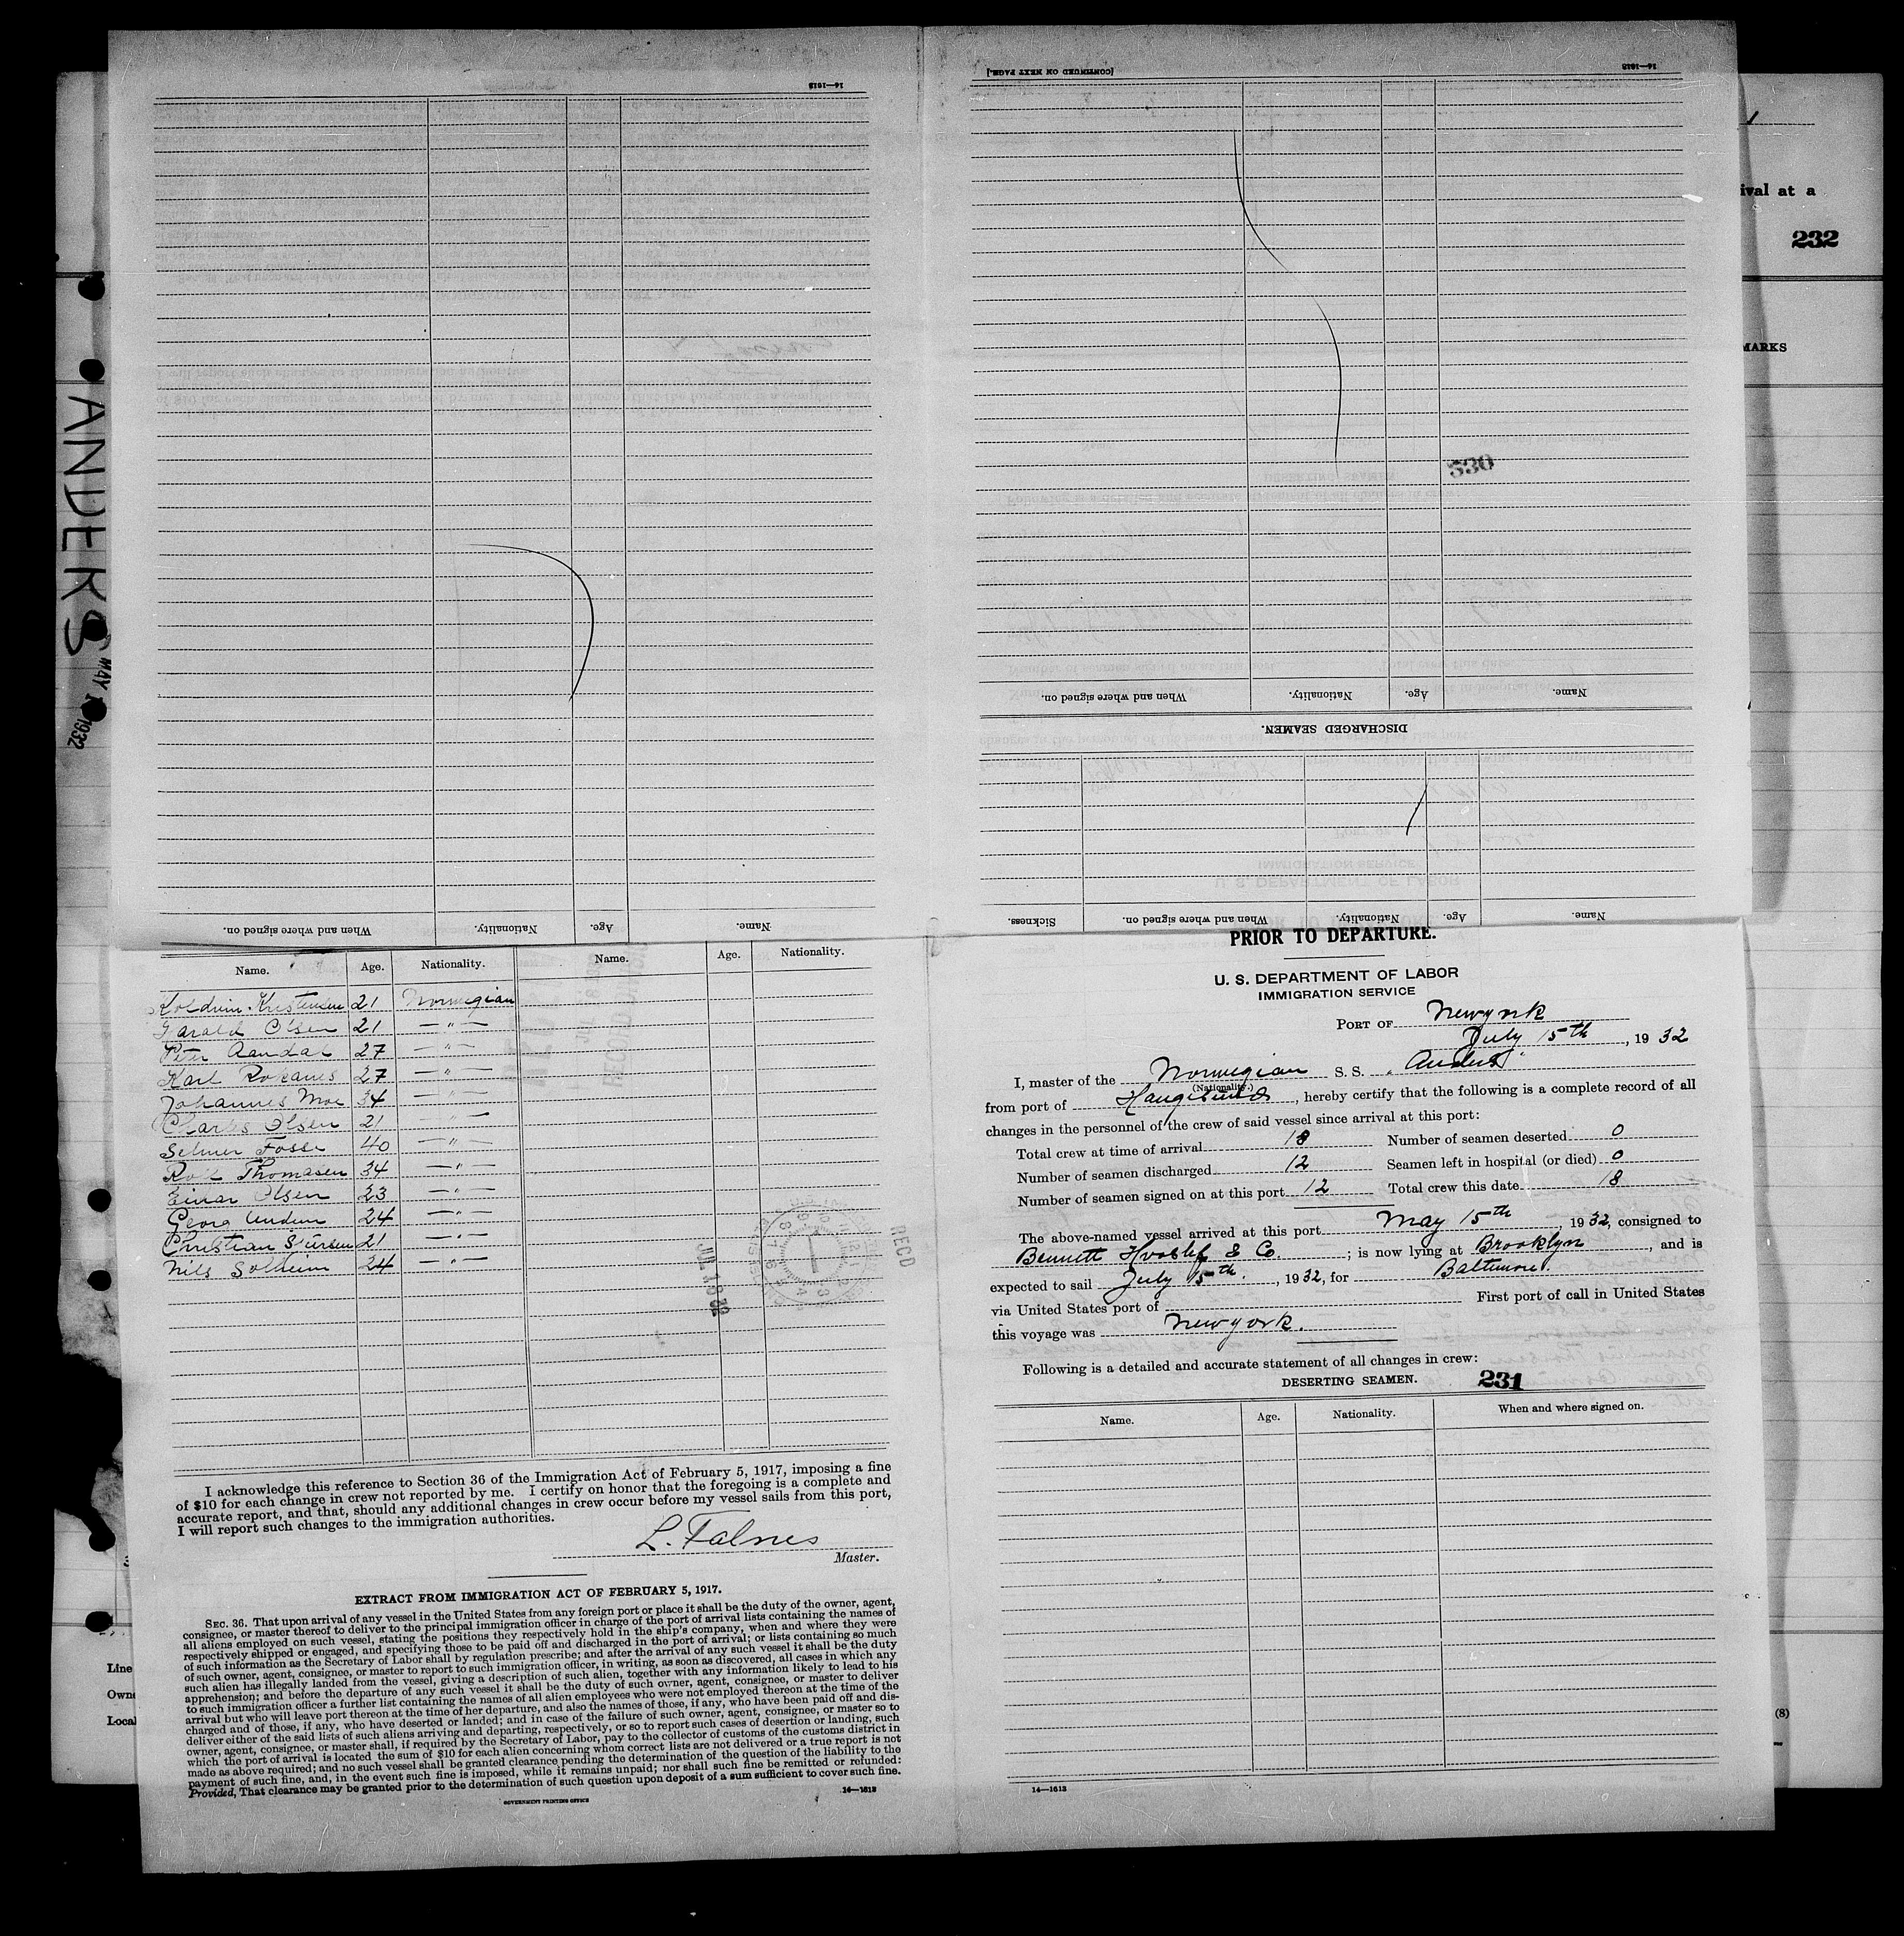 14—1613
[CONTINUED ON NEXT PAGE.]
14—1613
ival at a
232
MARKS
ANDERS
MAY
1932
530
Name. Age. Nationality. When and where signed on.
DISCHARGED SEAMEN.
Name. Age. Nationality. When and where signed on. Sickness.
Name. Age. Nationality. When and where signed on.
Name. Age. Nationality. Name. Age. Nationality.
Kristensen 21 Norwegian
Harald Olsen 21 — " —
Peter Aandal 27 — " —
Karl 27 — " —
Johannes Moe 34 — " —
Charles Olsen 21 — " —
Selmer Fosse 40 — " —
Rolf Thomasen 34 — " —
Einar Olsen 23 — " —
Georg 24 — " —
Christian 21 — " —
Nils Solheim 24 — " —
REC'D
I acknowledge this reference to Section 36 of the Immigration Act of February 5, 1917, imposing a fine
of $10 for each change in crew not reported by me. I certify on honor that the foregoing is a complete and
accurate report, and that, should any additional changes in crew occur before my vessel sails from this port,
I will report such changes to the immigration authorities.
L. Falnes
Master.
EXTRACT FROM IMMIGRATION ACT OF FEBRUARY 5, 1917.
SEC. 36. That upon arrival of any vessel in the United States from any foreign port or place it shall be the duty of the owner, agent,
consignee, or master thereof to deliver to the principal immigration officer in charge of the port of arrival lists containing the names of
all aliens employed on such vessel, stating the positions they respectively hold in the ship's company, when and where they were
respectively shipped or engaged, and specifying those to be paid off and discharged in the port of arrival; or lists containing so much
of such information as the Secretary of Labor shall by regulation prescribe; and after the arrival of any such vessel it shall be the duty
of such owner, agent, consignee, or master to report to such immigration officer, in writing, as soon as discovered, all cases in which any
such alien has illegally landed from the vessel, giving a description of such alien, together with any information likely to lead to his
apprehension; and before the departure of any such vessel it shall be the duty of such owner, agent, consignee, or master to deliver
to such immigration officer a further list containing the names of all alien employees who were not employed thereon at the time of the
arrival but who will leave port thereon at the time of her departure, and also the names of those, if any, who have been paid off and dis-
charged and of those, if any, who have deserted or landed; and in case of the failure of such owner, agent, consignee, or master so to
deliver either of the said lists of such aliens arriving and departing, respectively, or so to report such cases of desertion or landing, such
owner, agent, consignee, or master shall, if required by the Secretary of Labor, pay to the collector of customs of the customs district in
which the port of arrival is located the sum of $10 for each alien concerning whom correct lists are not delivered or a true report is not
made as above required; and no such vessel shall be granted clearance pending the determination of the question of the liability to the
payment of such fine, and, in the event such fine is imposed, while it remains unpaid; nor shall such fine be remitted or refunded:
Provided, That clearance may be granted prior to the determination of such question upon deposit of a sum sufficient to cover such fine.
GOVERNMENT PRINTING OFFICE
14—1613
PRIOR TO DEPARTURE.
U. S. DEPARTMENT OF LABOR
IMMIGRATION SERVICE
PORT OF New york
July 15th, 1932
I, master of the Norwegian S. S. "Anders"
(Nationality.)
from port of Haugesund, hereby certify that the following is a complete record of all
changes in the personnel of the crew of said vessel since arrival at this port:
Total crew at time of arrival 18 Number of seamen deserted 0
Number of seamen discharged 12 Seamen left in hospital (or died) 0
Number of seamen signed on at this port 12 Total crew this date 18
The above-named vessel arrived at this port May 15th, 1932, consigned to
Bennett Hvoslef & Co.; is now lying at Brooklyn, and is
expected to sail July 15th, 1932, for Baltimore.
via United States port of First port of call in United States
this voyage was New york.
Following is a detailed and accurate statement of all changes in crew:
DESERTING SEAMEN. 231
Name. Age. Nationality. When and where signed on.
14—1613
Line
Owne
Local
(8)